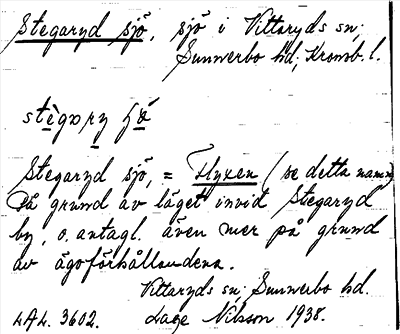 Stegaryd sjö, sjö i Vittaryds sn;
Sunnerbo hd, Kronob. l.
Stegaryd sjö, = Flyxen (se detta namn)
På grund av läget invid Stegaryd
by, o. antagl. även mer på grund
av ägoförhållandena.
Vittaryds sn; Sunnerbo hd.
LAL. 3602. Lage Nilsson 1938.